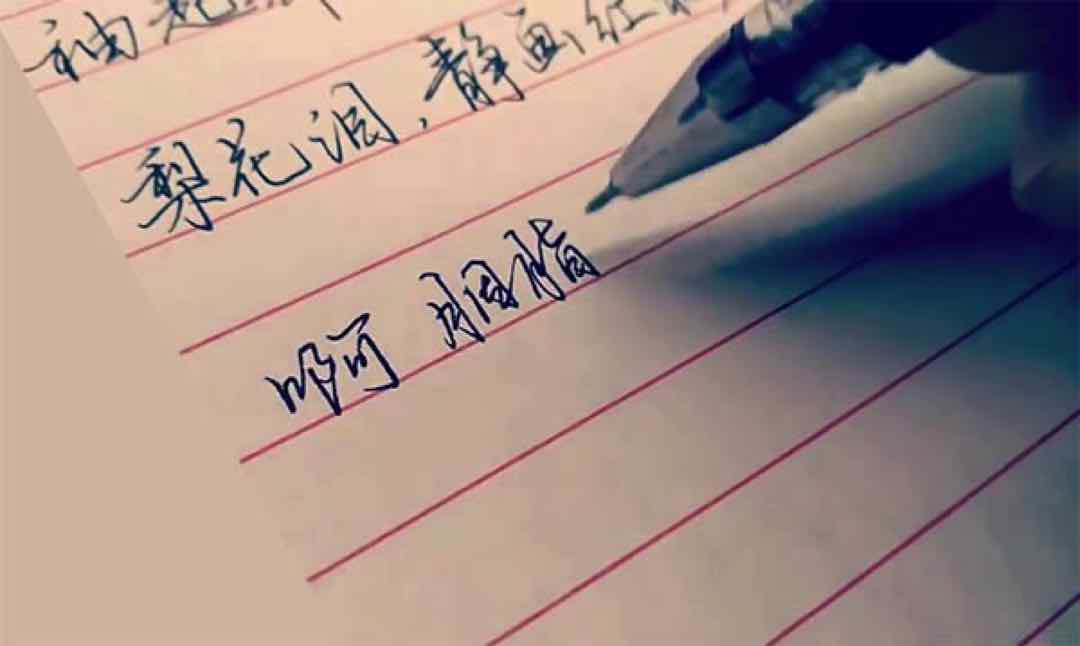 袖起
梨花泪，静画红
可 胭脂